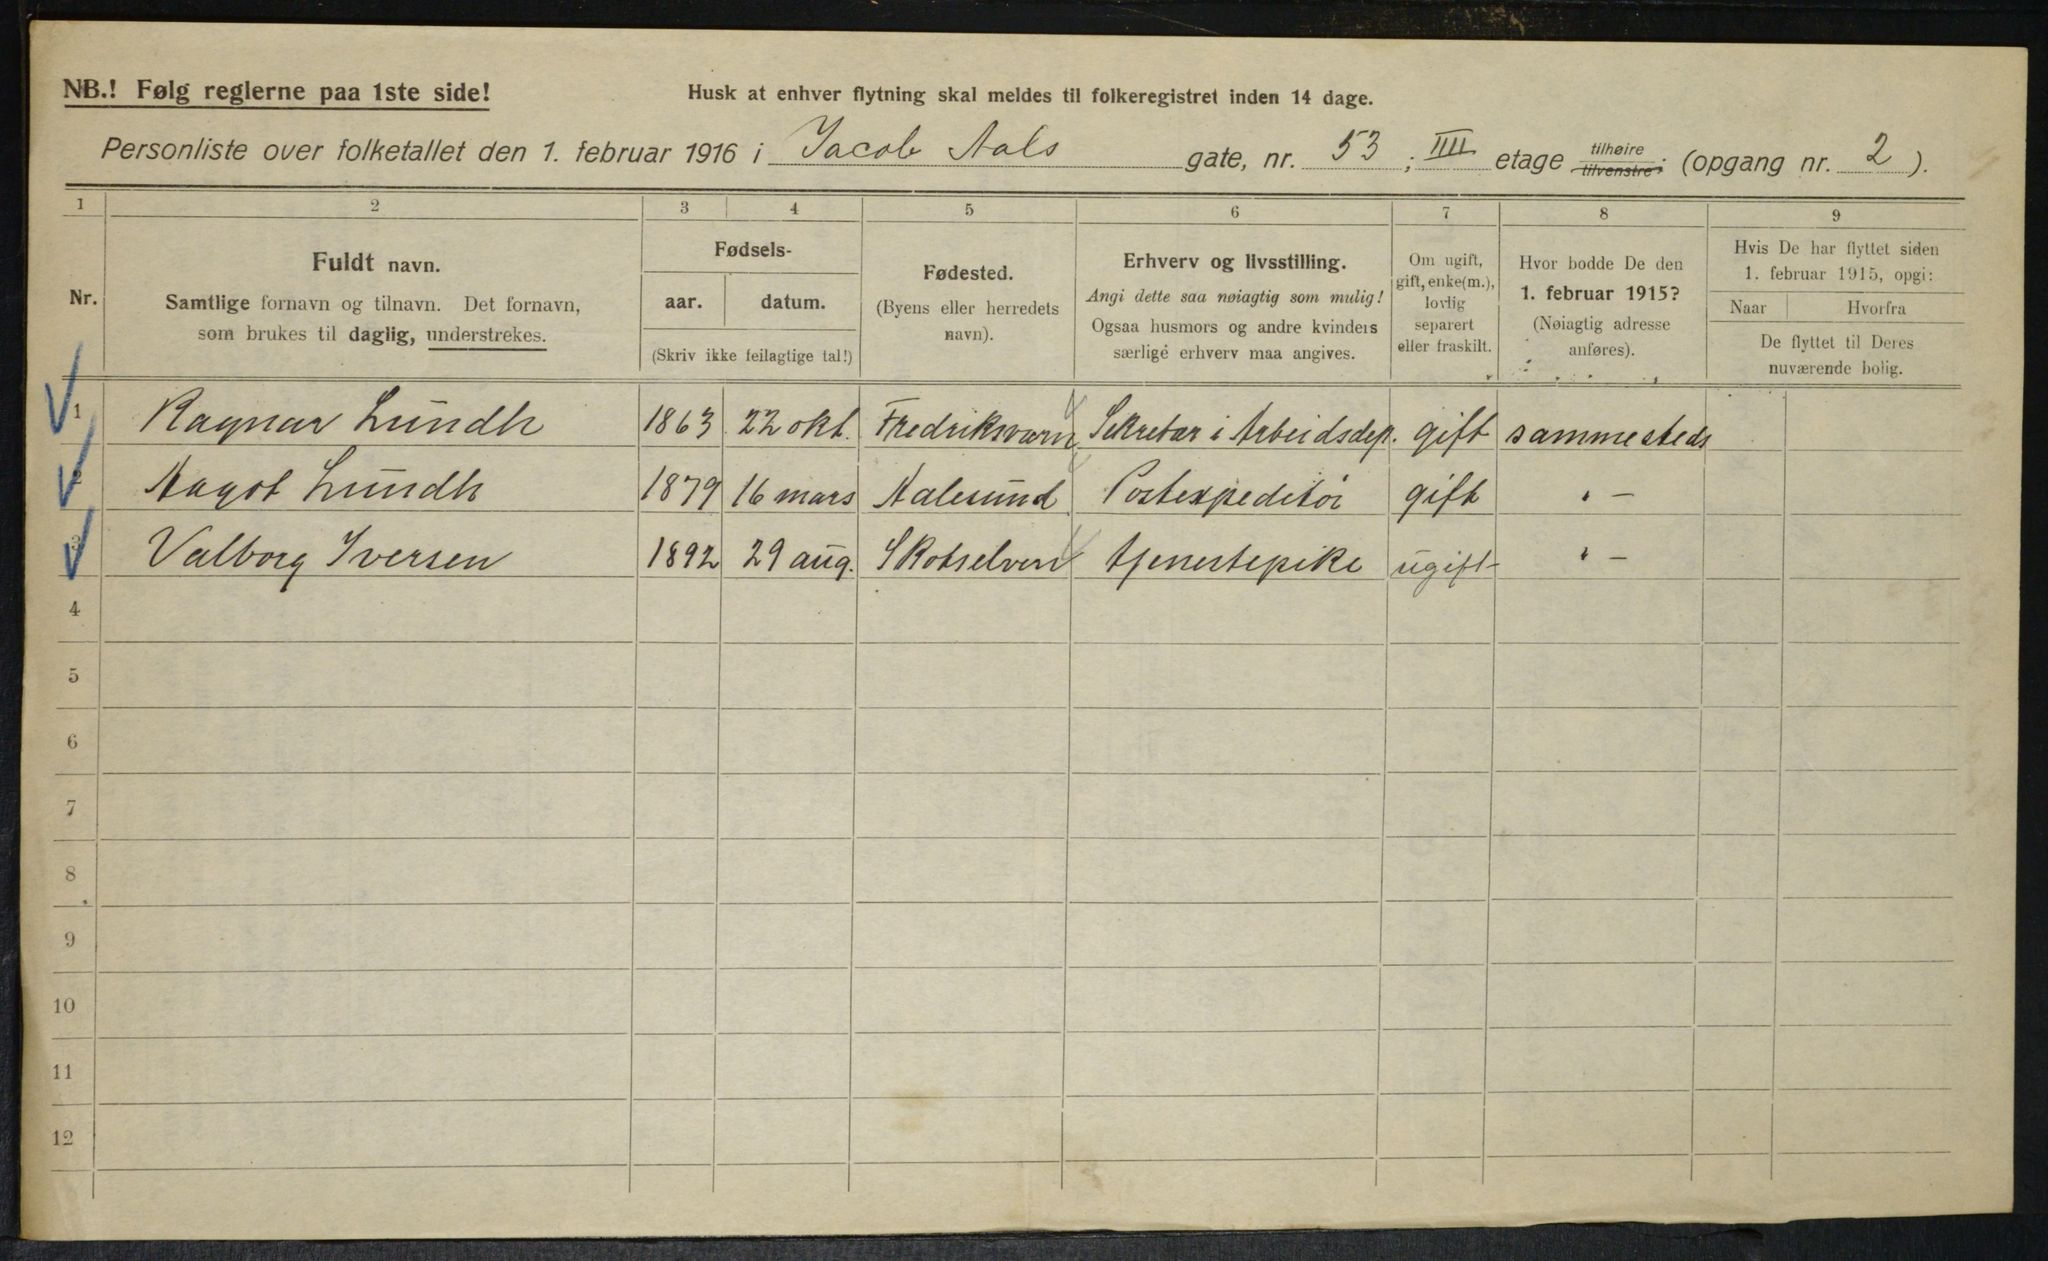 NB.! Følg reglerne paa 1ste side!
Husk at enhver flytning skal meldes til folkeregistret inden 14 dage.
Personliste over folketallet den 1. februar 1916 i Jacob Aals gate, nr. 53; IIII etage tilhøire tilvenstre; (opgang nr. 2).
1 2 3 4 5 6 7 8 9
Nr.
Fuldt navn.
Samtlige fornavn og tilnavn. Det fornavn,
som brukes til daglig, understrekes.
Fødsels-
aar. datum.
(Skriv ikke feilagtige tal!)
Fødested.
(Byens eller herredets
navn).
Erhverv og livsstilling.
Angi dette saa nøiagtig som mulig!
Ogsaa husmors og andre kvinders
særlige erhverv maa angives.
Om ugift,
gift, enke(m.),
lovlig
separert
eller fraskilt.
Hvor bodde De den
1. februar 1915?
(Nøiagtig adresse
anføres).
Hvis De har flyttet siden
1. februar 1915, opgi:
Naar Hvorfra
De flyttet til Deres
nuværende bolig.
1 Ragnar Lundh 1863 22 okt. Fredriksværn Sekretær i Arbeidsdep. gift sammesteds
2 Aagot Lundh 1879 16 mars Aalesund Postexpeditør gift " –
3 Valborg Iversen 1892 29 aug. Skotselven tjenestepike ugift " –
4
5
6
7
8
9
10
11
12